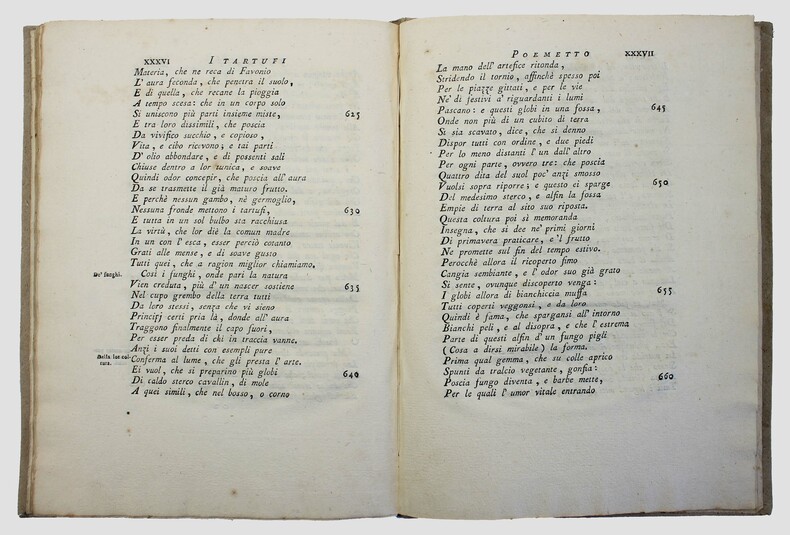 XXXVI I TARTUFI
Materia, che ne reca di Favonio
L' aura feconda, che penetra il suolo,
E di quella, che recane la pioggia
A tempo scesa: che in un corpo solo
Si uniscono più parti insieme miste, 625
E tra loro dissimili, che poscia
Da vivifico succhio, e copioso,
Vita, e cibo ricevono; e tai parti
D' olio abbondare, e di possenti sali
Chiuse dentro a lor tunica, e soave
Quindi odor concepir, che poscia all' aura
Da se trasmette il già maturo frutto.
E perchè nessun gambo, nè germoglio,
Nessuna fronde mettono i tartufi, 630
E tutta in un sol bulbo sta racchiusa
La virtù, che lor diè la comun madre
In un con l' esca, esser perciò cotanto
Grati alle mense, e di soave gusto
Tutti quei, che a ragion miglior chiamiamo.
De' funghi. Così i funghi, onde pari la natura
Vien creduta, più d' un nascer sostiene 635
Nel cupo grembo della terra tutti
Da loro stessi, senza che vi sieno
Principj certi pria là, donde all' aura
Traggono finalmente il capo fuori,
Per esser preda di chi in traccia vanne.
Anzi i suoi detti con esempli pure
Della lor coltura. Conferma al lume, che gli presta l' arte.
Ei vuol, che si preparino più globi 640
Di caldo sterco cavallin, di mole
A quei simili, che nel bosso, o corno
POEMETTO XXXVII
La mano dell' artefice ritonda,
Stridendo il tornio, affinchè spesso poi
Per le piazze gittati, e per le vie
Ne' dì festivi a' riguardanti i lumi
Pascano: e questi globi in una fossa, 645
Onde non più di un cubito di terra
Si sia scavato, dice, che si denno
Dispor tutti con ordine, e due piedi
Per lo meno distanti l' un dall' altro
Per ogni parte, ovvero tre: che poscia
Quattro dita del suol poc' anzi smosso
Vuolsi sopra riporre; e questo ei sparge 650
Del medesimo sterco, e alfin la fossa
Empie di terra al sito suo riposta.
Questa coltura poi sì memoranda
Insegna, che si dee ne' primi giorni
Di primavera praticare, e 'l frutto
Ne promette sul fin del tempo estivo.
Perocchè allora il ricoperto fimo
Cangia sembiante, e l' odor suo già grato
Si sente, ovunque discoperto venga:
I globi allora di bianchiccia muffa 655
Tutti coperti veggonsi, e da loro
Quindi è fama, che spargansi all' intorno
Bianchi peli, e al disopra, e che l' estrema
Parte di questi alfin d' un fungo pigli
(Cosa a dirsi mirabile) la forma.
Prima qual gemma, che su colle aprico
Spunti da tralcio vegetante, gonfia:
Poscia fungo diventa, e barbe mette, 660
Per le quali l' umor vitale entrando